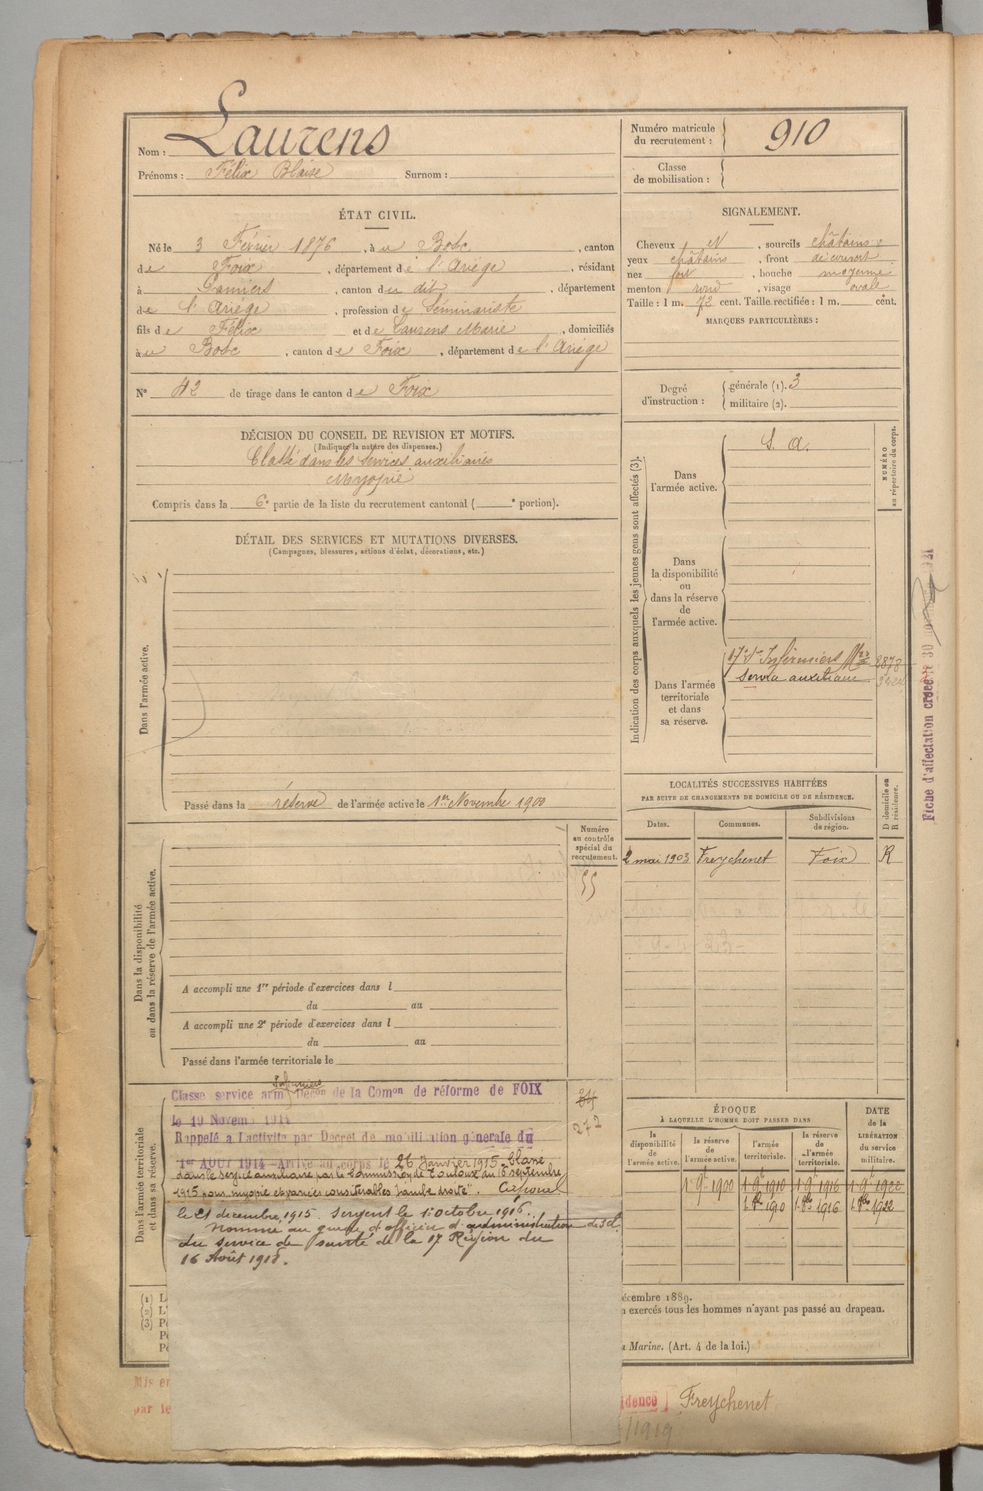 Nom : Laurens
Prénoms : Félix Blaise Surnom :
Numéro matricule du recrutement : 910
Classe de mobilisation :
ÉTAT CIVIL.
Né le 3 Février 1876, à u Bosc, canton
de Foix, département de l'Ariège, résidant
à Pamiers, canton du dit, département
de l'Ariège, profession de Séminariste
fils de Félix et de Laurens Marie, domiciliés
à u Bosc, canton de Foix, département de l'Ariège
SIGNALEMENT.
Cheveux et, sourcils châtains
yeux châtains, front découvert
nez fort, bouche moyenne
menton rond, visage ovale
Taille : 1 m. 72 cent. Taille rectifiée : 1 m. cent.
MARQUES PARTICULIÈRES :
N° 42 de tirage dans le canton de Foix
Degré d'instruction : générale (1). 3
militaire (2).
DÉCISION DU CONSEIL DE REVISION ET MOTIFS.
(Indiquer la nature des dispenses.)
Classé dans les services auxiliaires
Myopie
Compris dans la 6e partie de la liste du recrutement cantonal ( e portion).
DÉTAIL DES SERVICES ET MUTATIONS DIVERSES.
(Campagnes, blessures, actions d'éclat, décorations, etc.)
Dans l'armée active.
Passé dans la réserve de l'armée active le 1er Novembre 1900
Indication des corps auxquels les jeunes gens sont affectés (3).
NUMÉRO au répertoire du corps.
Dans l'armée active.
S. a.
Dans la disponibilité ou dans la réserve de l'armée active.
Dans l'armée territoriale et dans sa réserve.
17e Son Infirmiers Mres 2873
Service auxiliaire
Fiche d'affectation créée le 30
LOCALITÉS SUCCESSIVES HABITÉES
PAR SUITE DE CHANGEMENTS DE DOMICILE OU DE RÉSIDENCE.
Dates. Communes. Subdivisions de région. D domicile ou R résidence.
2 mai 1903 Freychenet Foix R
Numéro au contrôle spécial du recrutement.
55
Dans la disponibilité ou dans la réserve de l'armée active.
A accompli une 1re période d'exercices dans l
du au
A accompli une 2e période d'exercices dans l
du au
Passé dans l'armée territoriale le
Dans l'armée territoriale et dans sa réserve.
Classé service armé Infirmiers Décon de la Comon de réforme de FOIX
le 19 Novem. 1914
Rappelé à l'activité par Décret de mobilisation générale du
1er AOUT 1914 - Arrivé au corps le 26 Janvier 1915. Classé
dans le service auxiliaire par la Commission de Toulouse du 16 septembre
1915 pour myopie et varices considérables jambe droite". Caporal
le 21 décembre 1915. Sergent le 1 Octobre 1916.
Nommé au grade d'officier d'administration de 3e cl.
du service de santé de la 17 Région du
16 Août 1918.
272
ÉPOQUE
À LAQUELLE L'HOMME DOIT PASSER DANS
la disponibilité de l'armée active. la réserve de l'armée active. l'armée territoriale. la réserve de l'armée territoriale.
DATE de la LIBÉRATION du service militaire.
1 9 1900 1 9 1910 1 9 1916 1 9 1922
1 8bre 1910 1 8bre 1916 1 8bre 1922
(1) L
(2) L'
(3) P
décembre 1889.
exercés tous les hommes n'ayant pas passé au drapeau.
Marine. (Art. 4 de la loi.)
Mis en
par le
idence Freychenet
/1919